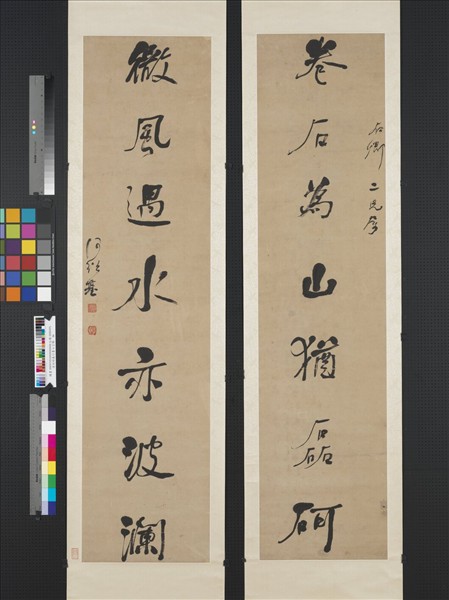 石卿二兄屬
卷石為山猶磊砢
微風過水亦波瀾
何紹基